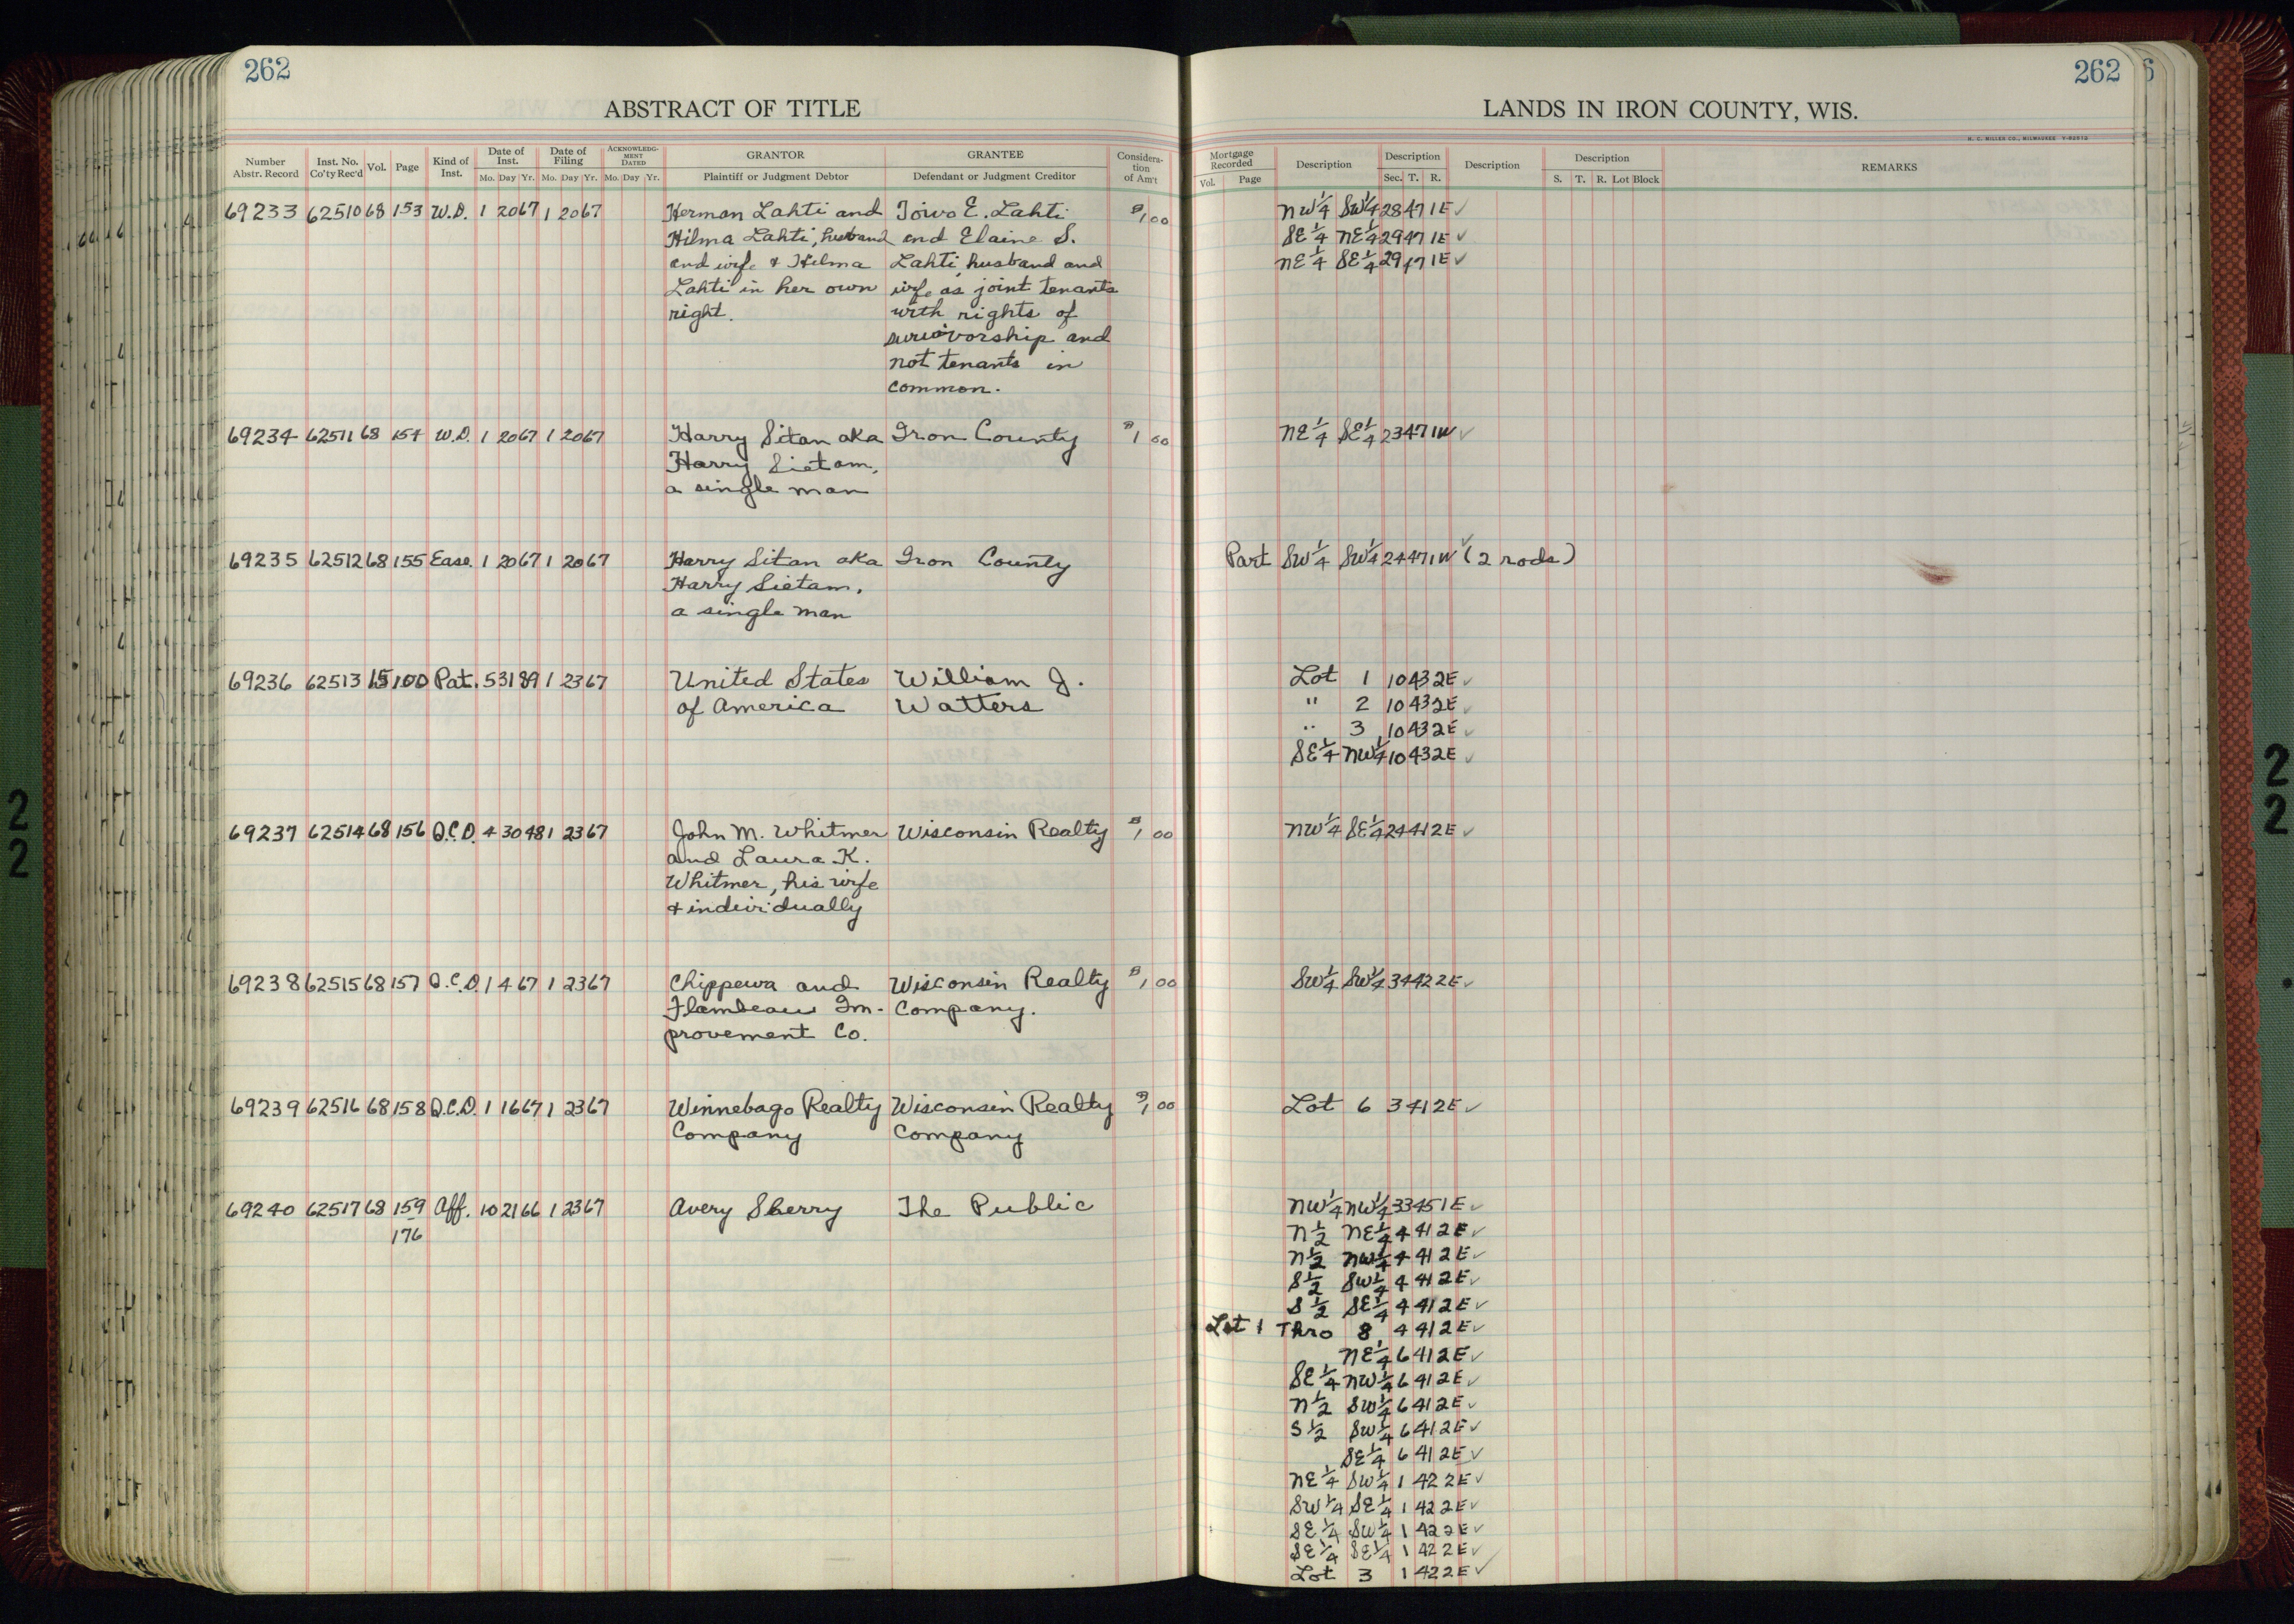 262
ABSTRACT OF TITLE
Number Abstr. Record Inst. No. Co'ty Rec'd Vol. Page Kind of Inst. Date of Inst. Mo. Day Yr. Date of Filing Mo. Day Yr. ACKNOWLEDGMENT DATED Mo. Day Yr. GRANTOR Plaintiff or Judgment Debtor GRANTEE Defendant or Judgment Creditor Consideration of Am't
69233 62510 68 153 W.D. 1 20 67 1 20 67 Herman Lahti and Toivo E. Lahti $1,00
Hilma Lahti, husband and Elaine S.
and wife & Hilma Lahti, husband and
Lahti in her own wife as joint tenants
right. with rights of
survivorship and
not tenants in
common.
69234 62511 68 154 W.D. 1 20 67 1 20 67 Harry Sitan aka Iron County $1 00
Harry Sietam,
a single man
69235 62512 68 155 Ease. 1 20 67 1 20 67 Harry Sitan aka Iron County
Harry Sietam,
a single man
69236 62513 15 100 Pat. 5 31 89 1 23 67 United States William J.
of America Watters
69237 62514 68 156 Q.C.D. 4 30 48 1 23 67 John M. Whitmer Wisconsin Realty $1,00
and Laura K.
Whitmer, his wife
& individually
69238 62515 68 157 Q.C.D 1 4 67 1 23 67 Chippewa and Wisconsin Realty $1,00
Flambeau Im- Company.
provement Co.
69239 62516 68 158 Q.C.D. 1 16 67 1 23 67 Winnebago Realty Wisconsin Realty $1,00
Company Company
69240 62517 68 159 Aff. 10 21 66 1 23 67 Avery Sherry The Public
176
262
LANDS IN IRON COUNTY, WIS.
H. C. MILLER CO., MILWAUKEE
Mortgage Recorded Vol. Page Description Description Sec. T. R. Description Description S. T. R. Lot Block REMARKS
NW 1/4 SW 1/4 28 47 1E ✓
SE 1/4 NE 1/4 29 47 1E ✓
NE 1/4 SE 1/4 29 47 1E ✓
NE 1/4 SE 1/4 23 47 1W ✓
Part SW 1/4 SW 1/4 24 47 1W ✓ (2 rods)
Lot 1 10 43 2E ✓
" 2 10 43 2E ✓
" 3 10 43 2E ✓
SE 1/4 NW 1/4 10 43 2E ✓
NW 1/4 SE 1/4 24 41 2E ✓
SW 1/4 SW 1/4 34 42 2E ✓
Lot 6 3 41 2E ✓
NW 1/4 NW 1/4 33 45 1E ✓
N 1/2 NE 1/4 4 41 2E ✓
N 1/2 NW 1/4 4 41 2E ✓
S 1/2 SW 1/4 4 41 2E ✓
S 1/2 SE 1/4 4 41 2E ✓
Lot 1 Thro 8 4 41 2E ✓
NE 1/4 6 41 2E ✓
SE 1/4 NW 1/4 6 41 2E ✓
N 1/2 SW 1/4 6 41 2E ✓
S 1/2 SW 1/4 6 41 2E ✓
SE 1/4 6 41 2E ✓
NE 1/4 SW 1/4 1 42 2E ✓
SW 1/4 SE 1/4 1 42 2E ✓
SE 1/4 SW 1/4 1 42 2E ✓
SE 1/4 SE 1/4 1 42 2E ✓
Lot 3 1 42 2E ✓
22
22